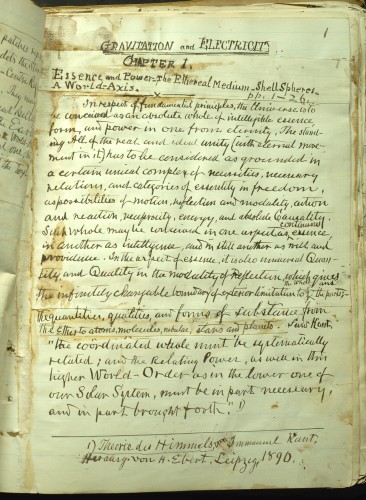 1
GRAVITATION and ELECTRICITY
CHAPTER 1.
Essence and Power. The Ethereal Medium. Shell Spheres.
A World-Axis. pp. 1-26.
In respect of fundamental principles, the Universe is to
be conceived as an absolute whole of intelligible essence,
form, and power in one from eternity. The stand-
ing All of the real and ideal unity (with eternal move-
ment in it) has to be considered as grounded in
a certain unical complex of necessities, necessary
relations, and categories of essentity in freedom,
as possibilities of motion, reflection and modality, action
and reaction, reciprocity, energy, and absolute Causality.
Such Whole may be conceived in one aspect as continuous essence
in another as intelligence, and in still another as will and
providence. In the aspect of essence, it is also numerical Quan-
tity and Quality in the modality of Reflection, which gives
the infinitely changeable boundary of exterior limitation to the whole and the parts-
the quantities, qualities, and forms of substance from
the Ether to atoms, molecules, nebulae, stars and planets. Said Kant,
"The coördinated whole must be systematically
related; and the Relating Power, as well in this
higher World-Order as in the lower one of
our Solar System, must be in part necessary,
and in part brought forth." 1)
1) Theorie des Himmels, von Immanuel Kant,
Herausg. von H. Ebert, Leipzig, 1890.